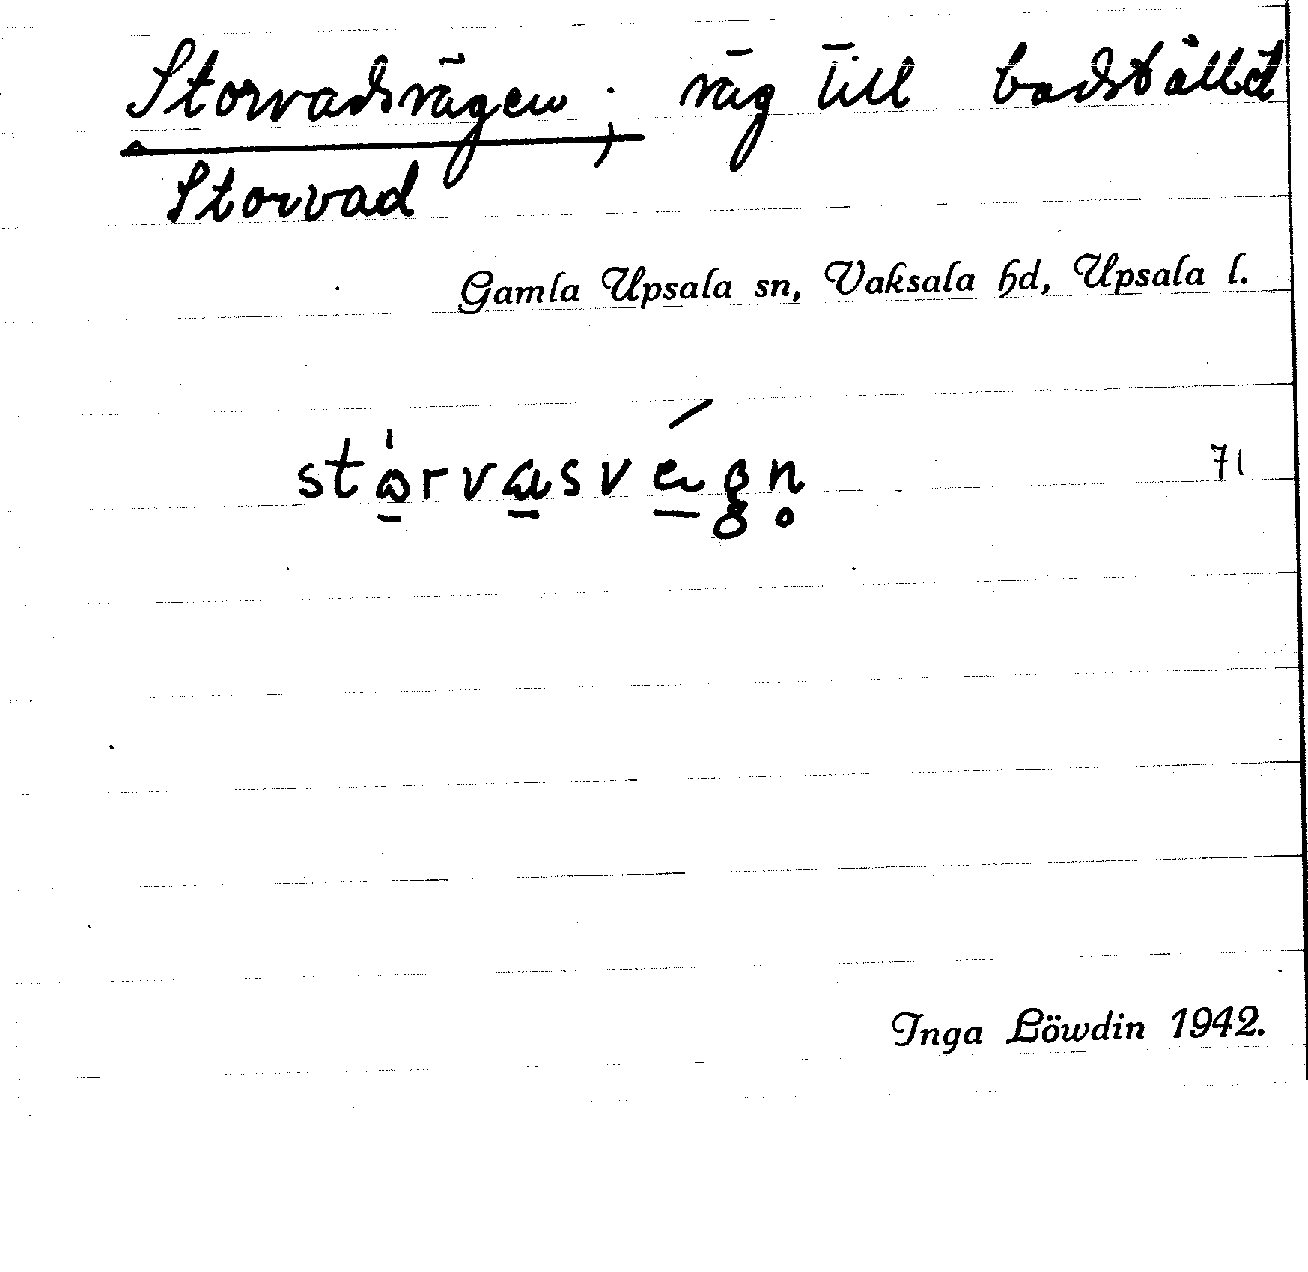 Storvadsvägen; väg till badstället
Storvad
Gamla Upsala sn, Vaksala hd, Upsala l.
71
Inga Löwdin 1942.